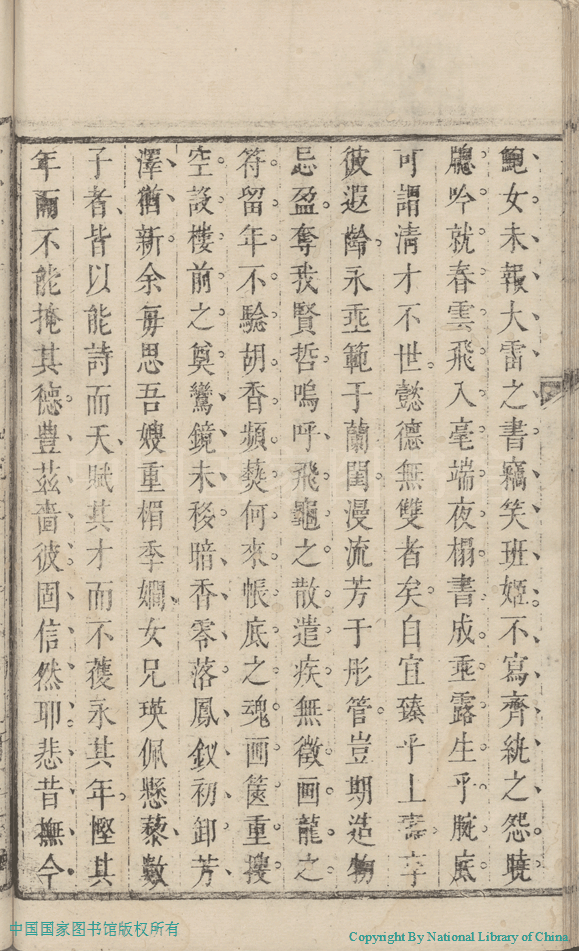 鮑女未報大雷之書竊笑班姬不寫齊紈之怨曉
聽吟就春雲飛入毫端夜榻書成垂露生乎腕底
可謂清才不世懿德無雙者矣自宜臻乎上壽享
彼遐齡永垂範于蘭閨漫流芳于彤管豈期造物
忌盈奪我賢哲嗚呼飛龜之散遣疾無徵画龍之
符留年不驗胡香頻爇何來帳底之魂画篋重搜
空設樓前之奠鸞鏡未移暗香零落鳳釵初卸芳
澤猶新余每思吾嫂重楣季嫺女兄瑛佩懸藜數
子者皆以能詩而夭賦其才而不獲永其年慳其
年而不能掩其德豊茲嗇彼固信然耶悲昔撫今
中国国家图书馆版权所有
Copyright By National Library of China